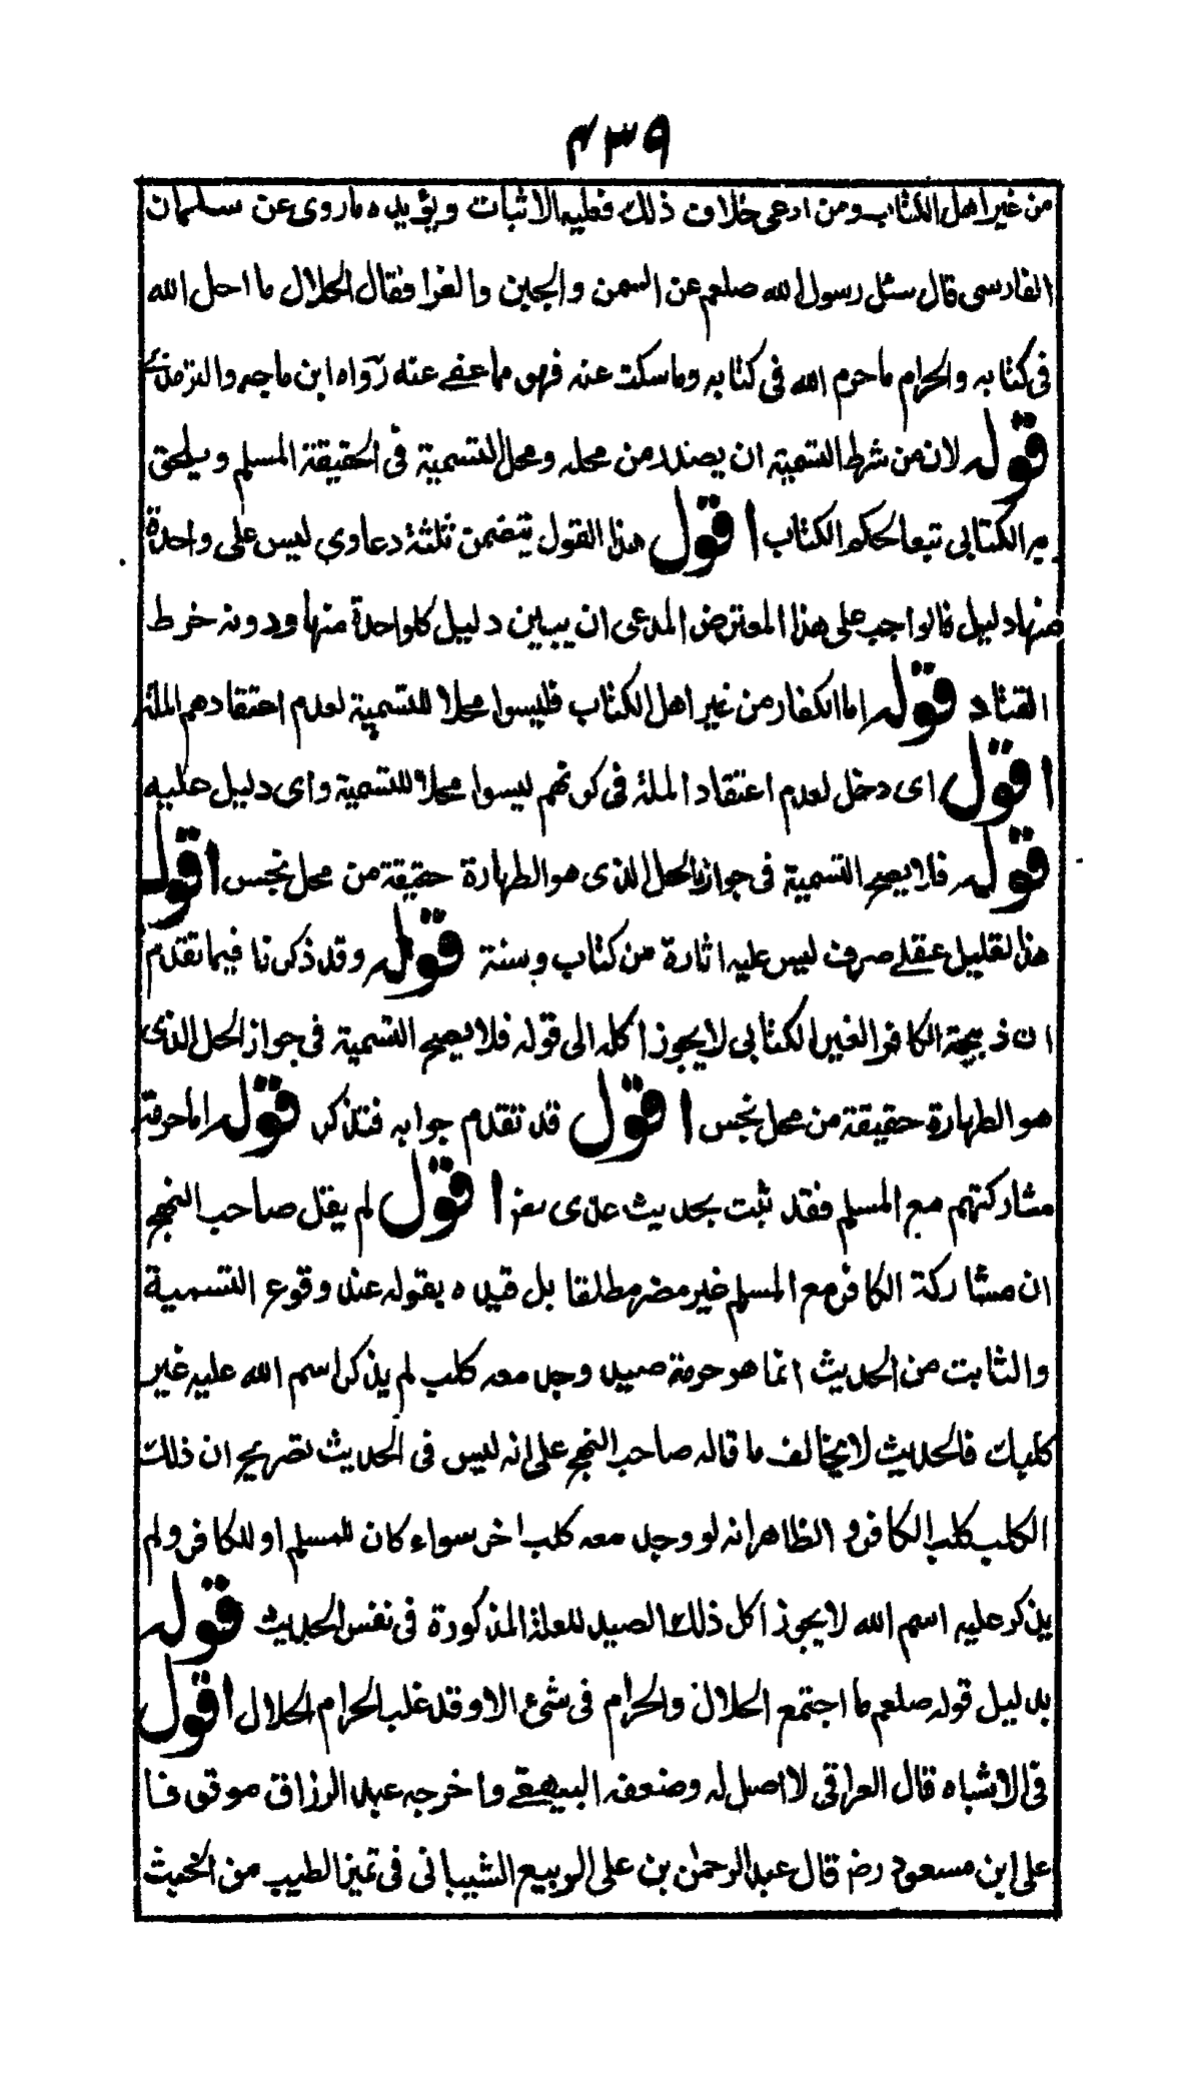 ٤٣٩
من غير اهل الكتاب ومن ادعى خلاف ذلك فعليه الاثبات ويؤيده ماروى عن سلمان
الفارسى قال سئل رسول الله صلعم عن السمن والجبن والفرا فقال الحلال ما احل الله
فى كتابه والحرام ماحرم الله فى كتابه وماسكت عنه فهو مما عفے عنه رواه ابن ماجه والترمذے
قوله لان من شرط التسمية ان يصدر من محله ومحل التسمية فى الحقيقة المسلم ويلحق
به الكتابى تبعا لحكم الكتاب اقول هذا القول يتضمن ثلثة دعاوى ليس على واحدة
منها دليل فالواجب على هذا المعترض المدعى ان يبين دليل كلواحدة منها ودونه خرط
القتاد قوله اما الكفار من غير اهل الكتاب فليسوا محلا للتسمية لعدم اعتقادهم الملة
اقول اى دخل لعدم اعتقاد الملة فى كونهم ليسوا محلا للتسمية واى دليل عليه
قوله فلا يصح التسمية فى جواز الحل الذى هو الطهارة حقيقة من محل نجس اقول
هذا تعليل عقلے صرف ليس عليه اثارة من كتاب وسنة قوله وقد ذكرنا فيما تقدم
ان ذبيحة الكافر الغير الكتابى لا يجوز اكله الى قوله فلا يصح التسمية فى جواز الحل الذى
هو الطهارة حقيقة من محل نجس اقول قد تقدم جوابه فتذكر قوله اما حرمة
مشاركتهم مع المسلم فقد ثبت بحديث عدى اقول لم يقل صاحب النهج
ان مشاركة الكافر مع المسلم غير مضر مطلقا بل قيده بقوله عند وقوع التسمية
والثابت من الحديث انما هو حرمة صيد وجد معه كلب لم يذكر اسم الله عليه غير
كلبك فالحديث لا يخالف ما قاله صاحب النهج على انه ليس فى الحديث تصريح ان ذلك
الكلب كلب الكافر و الظاهر انه لو وجد معه كلب اخر سواء كان للمسلم او للكافر ولم
يذكر عليه اسم الله لا يجوز اكل ذلك الصيد للعلة المذكورة فى نفس الحديث قوله
بدليل قوله صلعم ما اجتمع الحلال والحرام فى شئ الا وقد غلب الحرام الحلال اقول
فى الاشباه قال العراقى لا اصل له وضعفه البيهقے واخرجه عبد الرزاق موقوفا
على ابن مسعود رض قال عبد الرحمن بن على الربيع الشيبانى فى تميز الطيب من الخبث